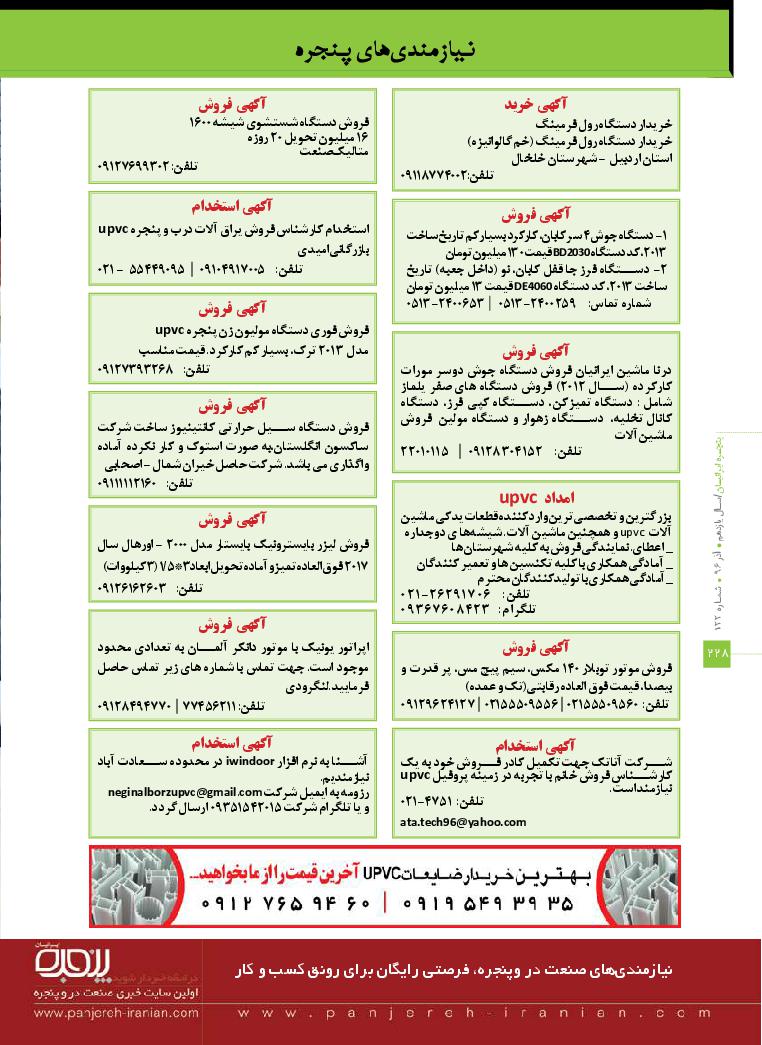 نیازمندی‌های پنجره
آگهی خرید
خریدار دستگاه رول فرمینگ
خریدار دستگاه رول فرمینگ (خم گالوانیزه)
استان اردبیل - شهرستان خلخال
تلفن: ۰۹۱۱۸۷۷۴۰۰۲
آگهی فروش
۱- دستگاه جوش ۴ سر کابان، کارکرد بسیار کم تاریخ ساخت
۲۰۱۳، کد دستگاه BD2030 قیمت ۱۳۰ میلیون تومان
۲- دستگاه فرز جا قفل کابان، نو (داخل جعبه) تاریخ
ساخت ۲۰۱۳، کد دستگاه DE4060 قیمت ۱۳ میلیون تومان
شماره تماس: ۲۴۰۰۲۵۹-۰۵۱۳ | ۲۴۰۰۶۵۳-۰۵۱۳
آگهی فروش
درنا ماشین ایرانیان فروش دستگاه جوش دوسر مورات
کارکرده (سال ۲۰۱۲) فروش دستگاه های صفر یلماز
شامل : دستگاه تمیزکن، دستگاه کپی فرز، دستگاه
کانال تخلیه، دستگاه زهوار و دستگاه مولین فروش
ماشین آلات
تلفن: ۰۹۱۲۸۳۰۴۱۵۲ | ۲۲۰۱۰۱۱۵
امداد upvc
بزرگترین و تخصصی ترین وارد کننده قطعات یدکی ماشین
آلات upvc و همچنین ماشین آلات، شیشه های دوجداره
_ اعطای نمایندگی فروش به کلیه شهرستان ها
_ آمادگی همکاری با کلیه تکنسین ها و تعمیر کنندگان
_ آمادگی همکاری با تولیدکنندگان محترم
تلفن: ۲۶۲۹۱۷۰۶-۰۲۱
تلگرام: ۰۹۳۶۷۶۰۸۴۲۳
آگهی فروش
فروش موتور توبلار ۱۴۰ مکس، سیم پیچ مس، پر قدرت و
بیصدا، قیمت فوق العاده رقابتی (تک و عمده)
تلفن: ۰۲۱۵۵۵۰۹۵۶۰ | ۰۲۱۵۵۵۰۹۵۵۶ | ۰۹۱۲۹۶۲۴۱۲۷
آگهی استخدام
شرکت آتاتک جهت تکمیل کادر فروش خود به یک
کارشناس فروش خانم با تجربه در زمینه پروفیل upvc
نیازمند است.
تلفن: ۴۷۵۱-۰۲۱
ata.tech96@yahoo.com
آگهی فروش
فروش دستگاه شستشوی شیشه ۱۶۰۰
۱۶ میلیون تحویل ۲۰ روزه
متالیک صنعت
تلفن: ۰۹۱۲۷۶۹۹۳۰۲
آگهی استخدام
استخدام کارشناس فروش یراق آلات درب و پنجره upvc
بازرگانی امیدی
تلفن: ۰۹۱۰۴۹۱۷۰۰۵ | ۵۵۴۴۹۰۹۵ - ۰۲۱
آگهی فروش
فروش فوری دستگاه مولیون زن پنجره upvc
مدل ۲۰۱۳ ترک، بسیار کم کارکرد، قیمت مناسب
تلفن: ۰۹۱۲۷۳۹۳۲۶۸
آگهی فروش
فروش دستگاه سیل حرارتی کانتینیوز ساخت شرکت
ساکسون انگلستان، به صورت استوک و کار نکرده آماده
واگذاری می باشد. شرکت حاصل خیزان شمال - اصحابی
تلفن: ۰۹۱۱۱۱۱۲۱۶۰
آگهی فروش
فروش لیزر بایسترونیک بایستار مدل ۲۰۰۰ - اورهال سال
۲۰۱۷ فوق العاده تمیز و آماده تحویل ابعاد ۳*۱/۵ (۳ کیلووات)
تلفن: ۰۹۱۲۶۱۶۲۶۰۳
آگهی فروش
اپراتور یونیک با موتور دانکر آلمان به تعدادی محدود
موجود است. جهت تماس با شماره های زیر تماس حاصل
فرمایید. لنگرودی
تلفن: ۷۷۴۵۶۲۱۱ | ۰۹۱۲۸۴۹۴۷۷۰
آگهی استخدام
آشنا به نرم افزار iwindoor در محدوده سعادت آباد
نیازمندیم.
رزومه به ایمیل شرکت neginalborzupvc@gmail.com
و یا تلگرام شرکت ۰۹۳۵۱۵۴۲۰۱۵ ارسال گردد.
بهترین خریدار ضایعات UPVC آخرین قیمت را از ما بخواهید...
۰۹۱۹ ۵۴۹ ۳۹ ۳۵ | ۰۹۱۲ ۷۶۵ ۹۴ ۶۰
پنجره ایرانیان / سال یازدهم • آذر ۹۶ • شماره ۱۲۲
۲۲۸
نیازمندی‌های صنعت در و پنجره، فرصتی رایگان برای رونق کسب و کار
www.panjereh-iranian.com
ایرانیان
پنجره
اولین سایت خبری صنعت در و پنجره
www.panjereh-iranian.com